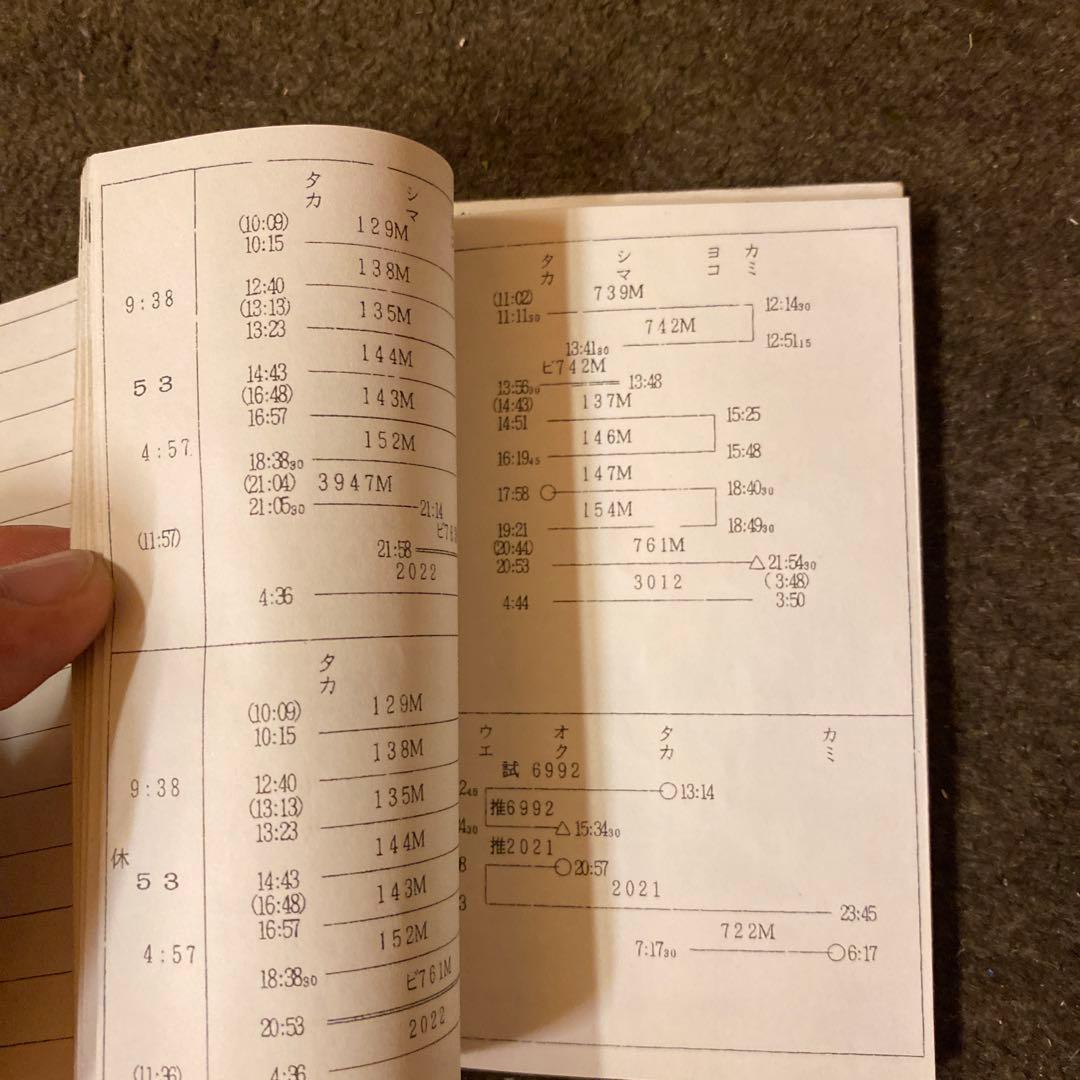 タカ シマ
(10:09) 129M
10:15
138M
9:38
12:40
(13:13) 135M
13:23
144M
53
14:43
(16:48) 143M
16:57
4:57
152M
18:38 30
(21:04) 3947M
21:05 30 21:14
(11:57)
21:58
2022
4:36
タカ
(10:09) 129M
10:15
138M
9:38
12:40
(13:13) 135M
13:23
144M
休
53
14:43
(16:48) 143M
16:57
4:57
152M
18:38 30
ビ761M
20:53
2022
(11:36)
4:36
タカ シマ ヨコ カミ
(11:02) 739M
11:11 30 12:14 30
742M
13:41 30 12:51 15
ビ742M
13:56 30 13:48
(14:43) 137M
14:51 15:25
146M
16:19 45 15:48
147M
17:58 18:40 30
154M
19:21 18:49 30
(20:44) 761M
20:53 △21:54 30
3012 (3:48)
4:44 3:50
ウエ オク タカ カミ
試 6992
○13:14
推6992
△15:34 30
推2021
○20:57
2021
23:45
722M
7:17 30 ○6:17